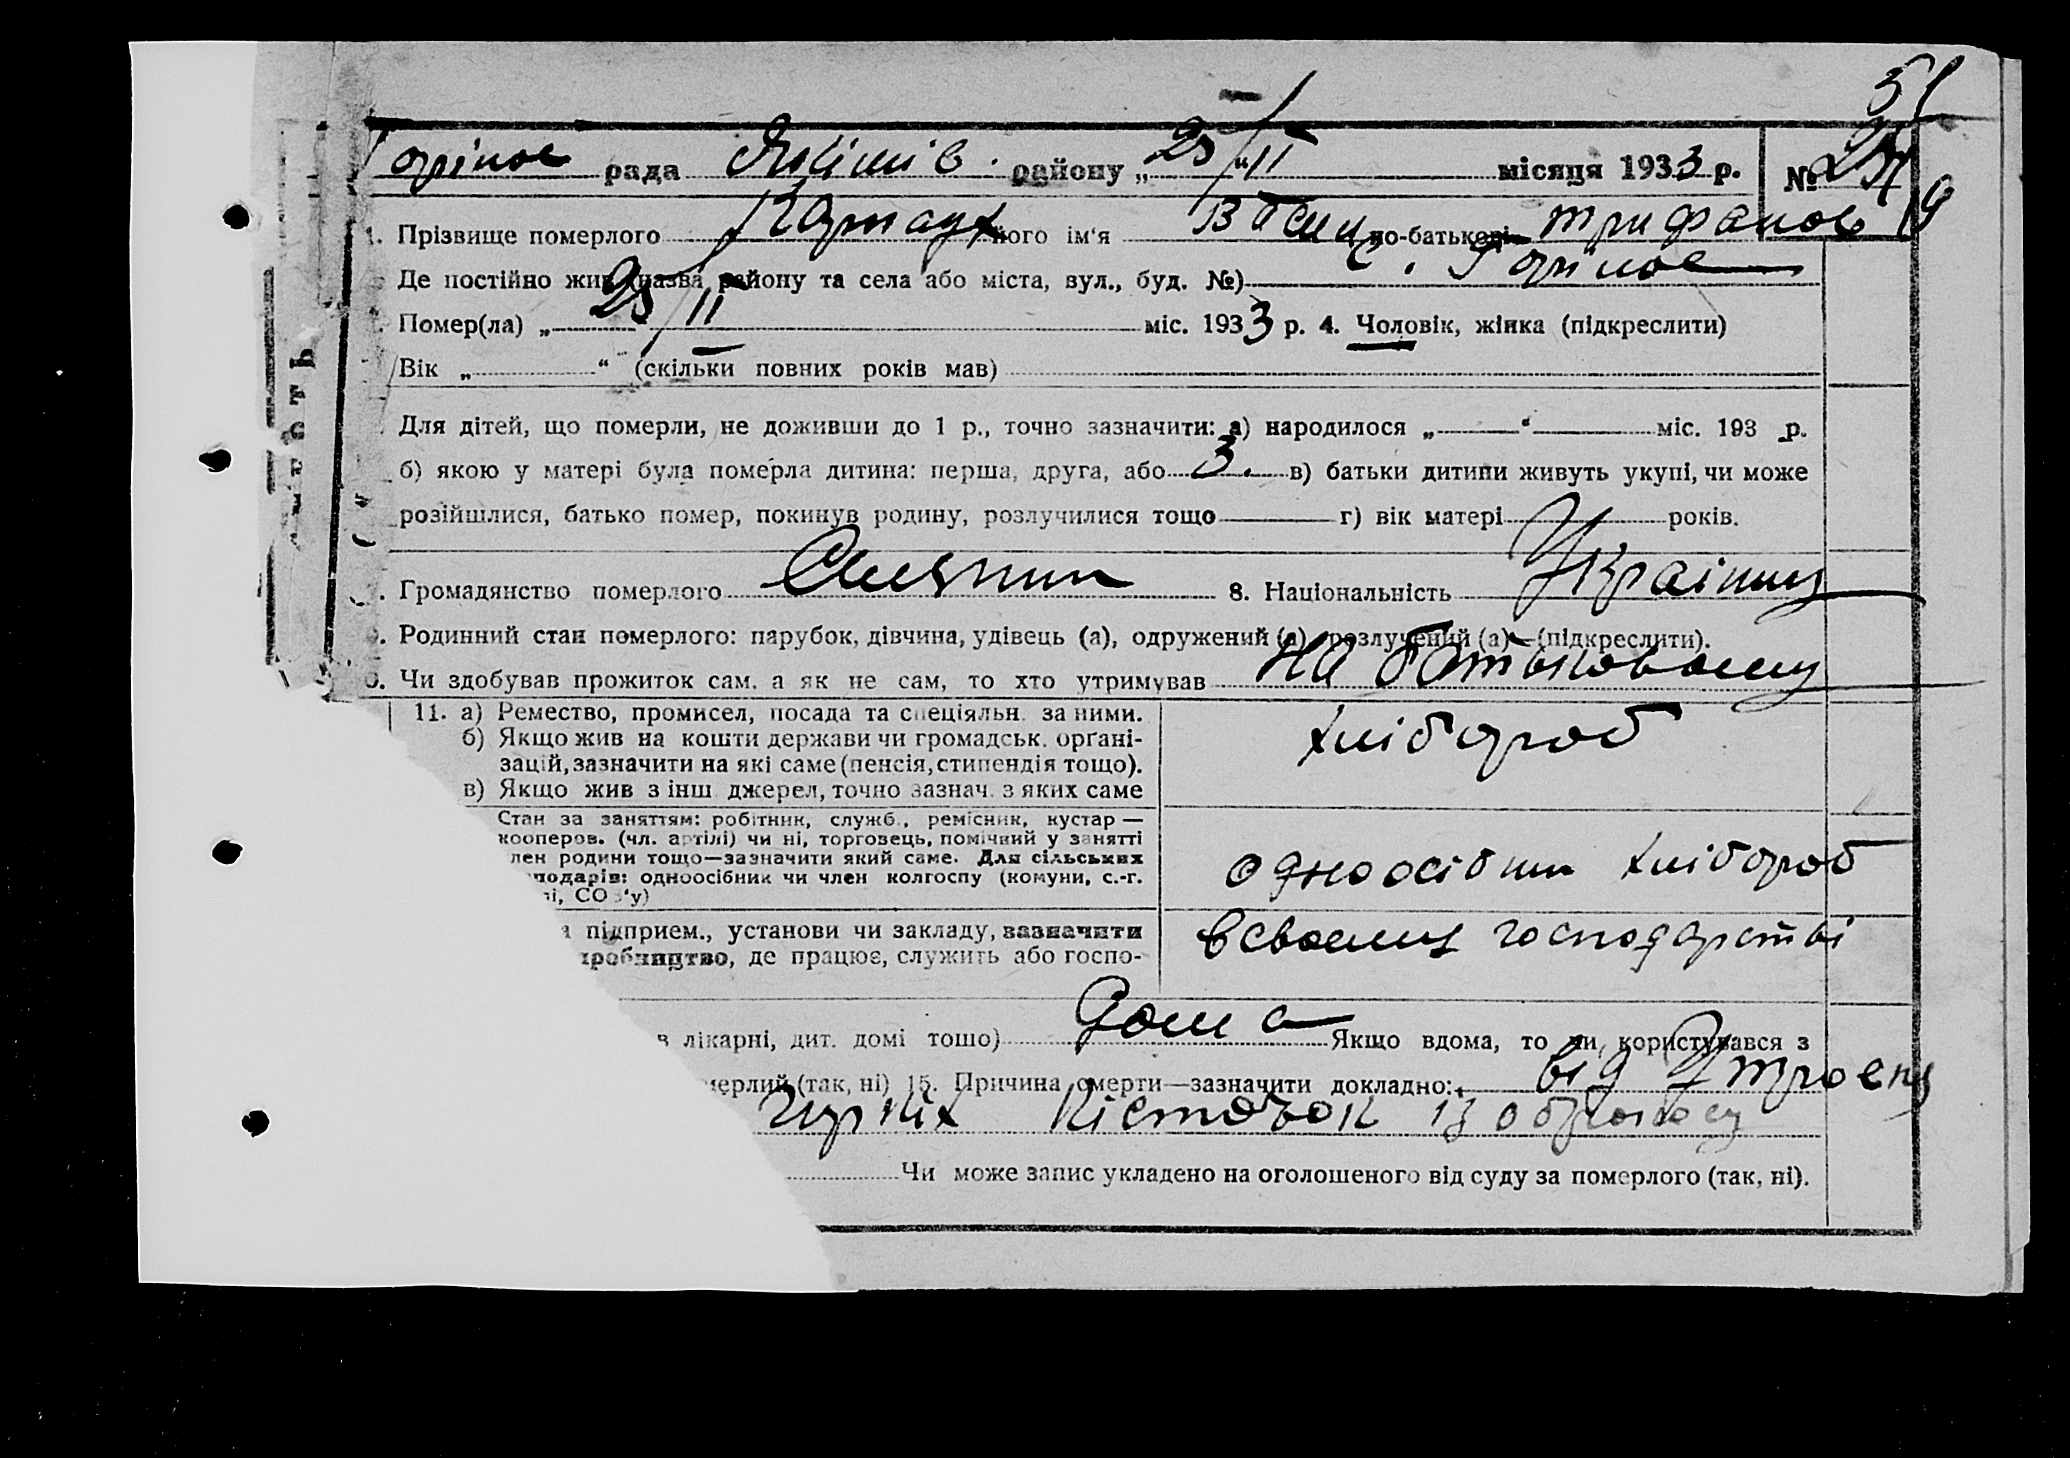 51
Горіное рада Якимів. району „25/II“ місяця 1933 р. №
Прізвище померлого його ім'я Васил по-батькові Трифанов 9
Де постійно жив (назва району та села або міста, вул., буд. №) с. Горіное
Помер(ла) „25/II міс. 1933 р. 4. Чоловік, жінка (підкреслити)
Вік „ “ (скільки повних років мав)
Для дітей, що померли, не доживши до 1 р., точно зазначити: а) народилося „ “ міс. 193 р.
б) якою у матері була померла дитина: перша, друга, або 3. в) батьки дитини живуть укупі, чи може
розійшлися, батько помер, покинув родину, розлучилися тощо г) вік матері років.
Громадянство померлого 8. Національність Украінец
Родинний стан померлого: парубок, дівчина, удівець (а), одружений (а), розлучений (а)—(підкреслити).
Чи здобував прожиток сам, а як не сам, то хто утримував на батьковому
11. а) Ремество, промисел, посада та спеціяльн. за ними. хлібороб
б) Якщо жив на кошти держави чи громадськ. орґані-
зацій, зазначити на які саме (пенсія, стипендія тощо).
в) Якщо жив з інш джерел, точно зазнач. з яких саме
Стан за заняттям: робітник, служб., ремісник, кустар —
кооперов. (чл. артілі) чи ні, торговець, помічний у занятті
лен родини тощо—зазначити який саме. Для сільських
подарів: одноосібник чи член колгоспу (комуни, с.-г. одноосібник хлібороб
і, СО з'у)
підприєм., установи чи закладу, зазначити в своему господарстві
робництво, де працює, служить або госпо-
в лікарні, дит. домі тощо) дома Якщо вдома, то чи користувався з
мерлий (так, ні) 15. Причина смерти—зазначити докладно: від
кісточок
Чи може запис укладено на оголошеного від суду за померлого (так, ні).